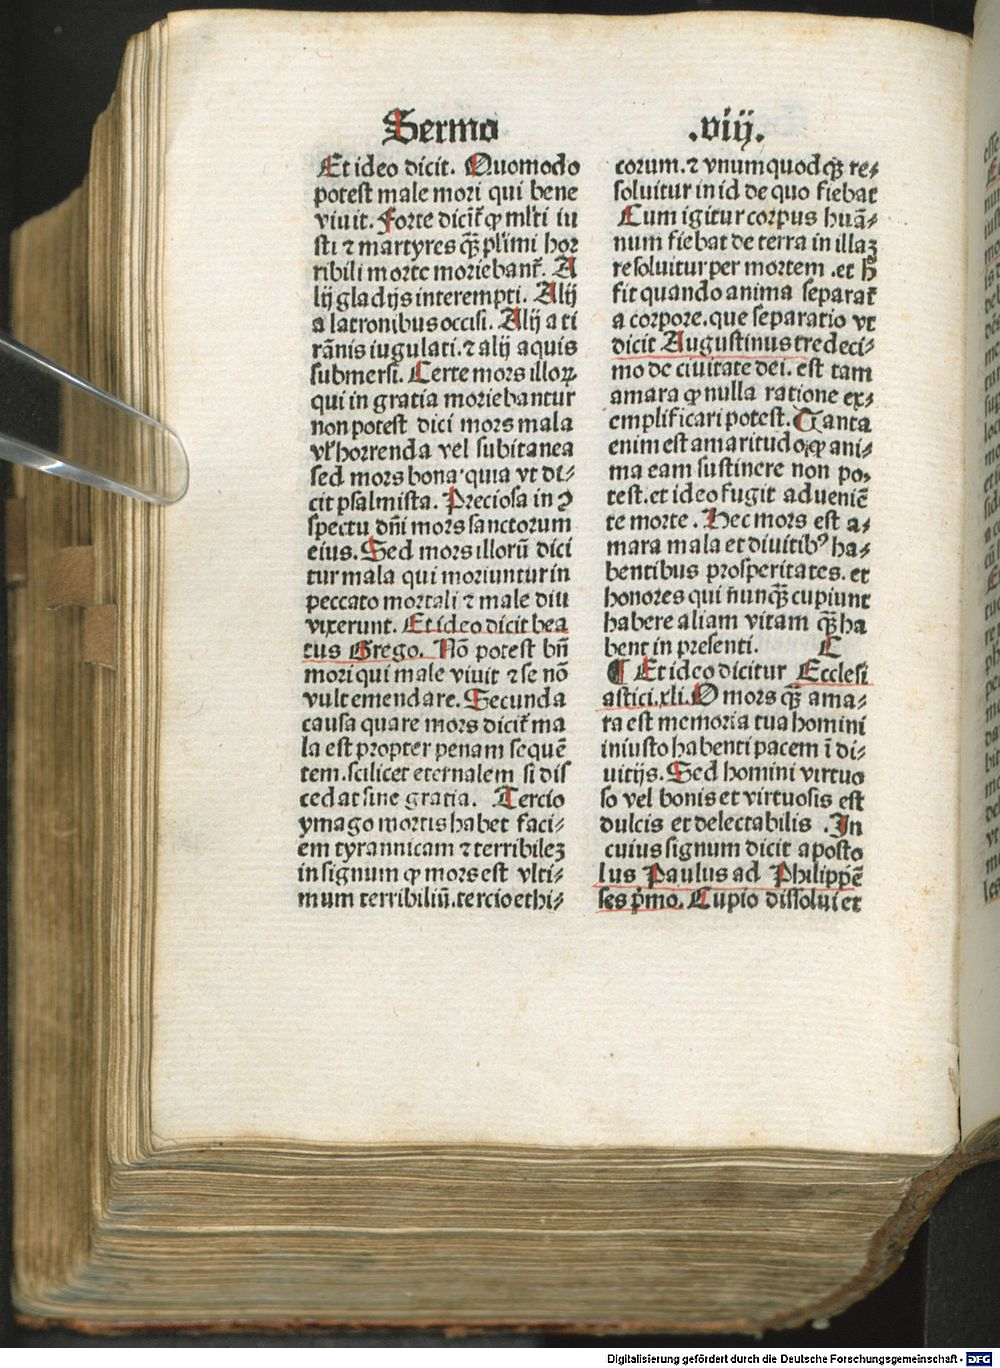 Sermo
.viij.
Et ideo dicit. Quomodo
potest male mori qui bene
viuit. Forte dicit̃ ꝙ ml̕ti iu
sti ⁊ martyres qq̃ꝫ pl̕imi hor
ribili morte moriebant̃. A
lij gladijs interempti. Alij
a latronibus occisi. Alij a ti
rãnis iugulati. ⁊ alij aquis
submersi. Certe mors illoꝝ
qui in gratia moriebantur
non potest dici mors mala
vl̕ horrenda vel subitanea
sed mors bona quia vt di⸗
cit psalmista. Preciosa in ꝯ
spectu dñi mors sanctorum
eius. Sed mors illorũ dici
tur mala qui moriuntur in
peccato mortali ⁊ male diu
vixerunt. Et ideo dicit bea
tus Grego. Nõ potest bñ
mori qui male viuit ⁊ se nõ
vult emendare. Secunda
causa quare mors dicit̃ ma
la est propter penam sequẽ
tem. scilicet eternalem si dis
cedat sine gratia. Tercio
ymago mortis habet faci⸗
em tyrannicam ⁊ terribileꝫ
in signum ꝙ mors est vlti⸗
mum terribiliũ. tercio ethi⸗
corum. ⁊ vnumquodqꝫ re⸗
soluitur in id de quo fiebat
Cum igitur corpus huã⸗
num fiebat de terra in illaꝫ
resoluitur per mortem. et h̃
fit quando anima separat̃
a corpore. que separatio vt
dicit Augustinus tredeci⸗
mo de ciuitate dei. est tam
amara ꝙ nulla ratione ex⸗
emplificari potest. Tanta
enim est amaritudo, ꝙ ani⸗
ma eam sustinere non po⸗
test. et ideo fugit adueniẽ
te morte. Hec mors est a⸗
mara mala et diuitibꝰ ha⸗
bentibus prosperitates. et
honores qui ñunqꝫ cupiunt
habere aliam vitam qꝫ ha
bent in presenti. C
¶ Et ideo dicitur Ecclesi
astici. xli. O mors qꝫ ama⸗
ra est memoria tua homini
iniusto habenti pacem ĩ di⸗
uitijs. Sed homini virtuo
so vel bonis et virtuosis est
dulcis et delectabilis. In
cuius signum dicit aposto
lus Paulus ad Philippẽ
ses p̃mo. Cupio dissolui et
Digitalisierung gefördert durch die Deutsche Forschungsgemeinschaft - DFG